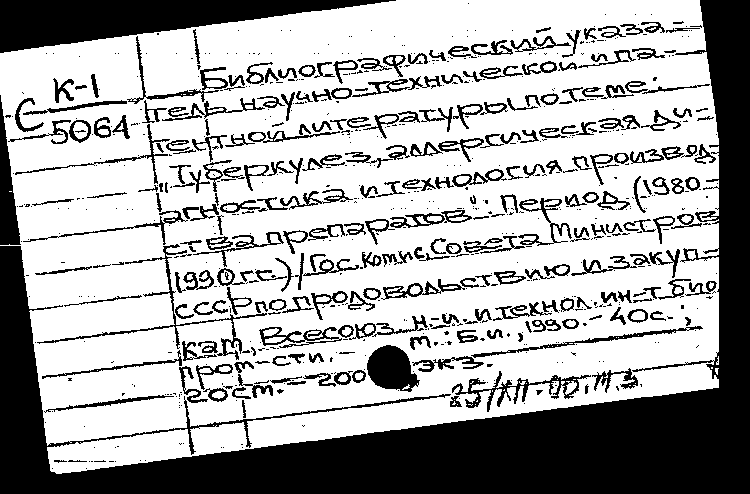 С К-1
5064
Библиографический указа-
тель научно-технической и па-
тентной литературы по теме:
"Туберкулез, аллергическая ди-
агностика и технология производ-
ства препаратов": Период (1980-
1990 гг.)/Гос. комис. Совета Министров
СССР по продовольствию и закуп-
кам, Всесоюз. н-и. и технол. ин-т био
пром-сти. - м.: Б.и., 1990. - 40с.;
20 см. - 200 экз.
25/XII-90. м.з